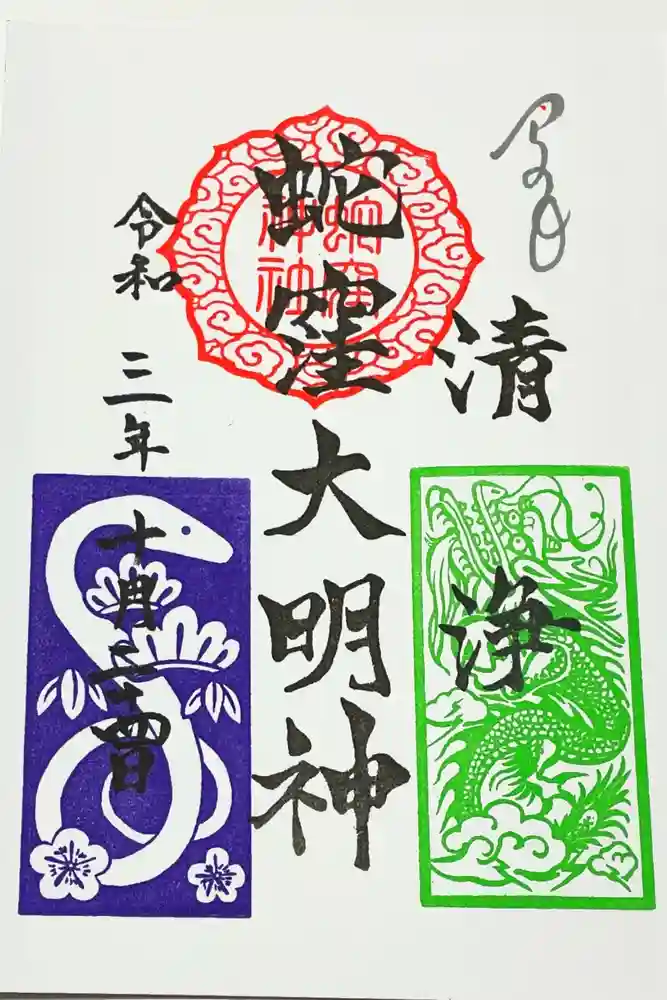 清浄
蛇窪大明神
蛇窪
神社
令和三年十月二十四日